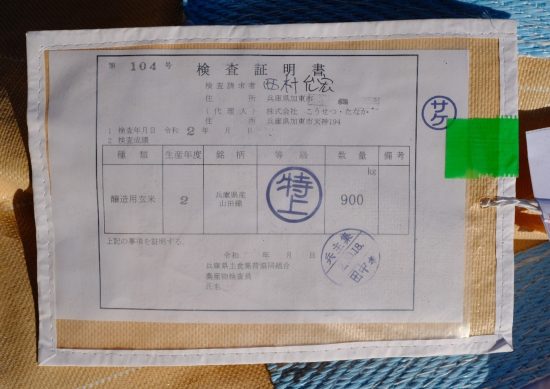 第 104 号 検査証明書
検査請求者 西村
住 所 兵庫県加東市
(代理人) 株式会社 こうせつ・たなか
住 所 兵庫県加東市天神194
サケ
1 検査年月日 令和 2 年 月 日
2 検査成績
種 類 生産年度 銘 柄 等 級 数 量 備 考
kg
醸造用玄米 2 兵庫県産 特上 900
山田錦
上記の事項を証明する。
令和 年 月 日
兵庫県主食集荷協同組合
農産物検査員
氏名
兵主集
田中